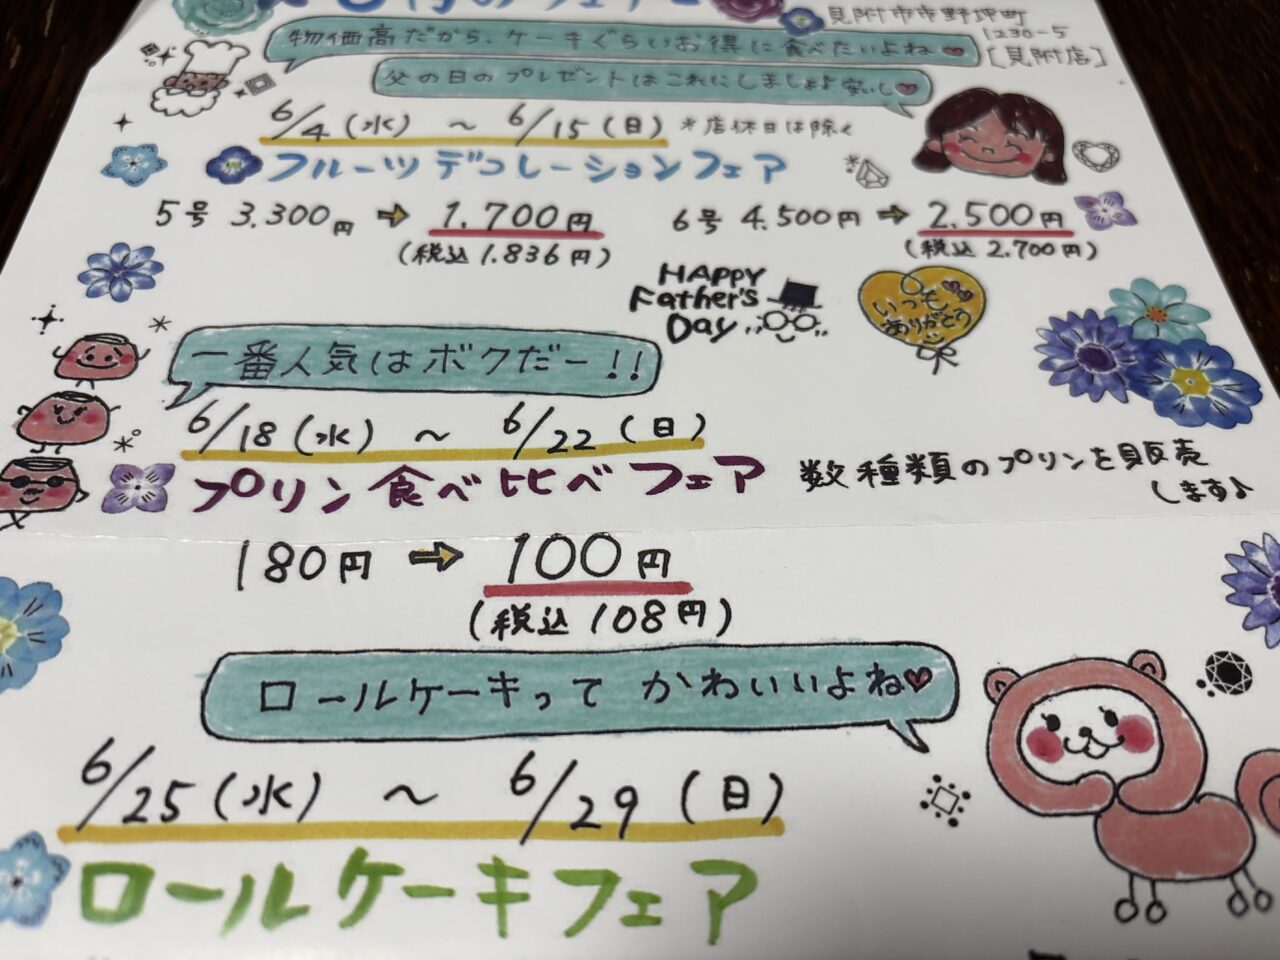 6月のフェアー
見附市市野坪町
1230-5
[見附店]
物価高だから、ケーキぐらいお得に食べたいよね♥
父の日のプレゼントはこれにしましょよ安いし♥
6/4(水) ~ 6/15(日) *店休日は除く
フルーツデコレーションフェア
5号 3.300円 ⇨ 1.700円 6号 4.500円 ⇨ 2.500円
(税込1.836円) (税込 2.700円)
HAPPY
Father's
Day
いつも
ありがとう
一番人気はボクだー!!
6/18(水) ~ 6/22(日)
プリン食べ比べフェア 数種類のプリンを販売
します♪
180円 ⇨ 100円
(税込108円)
ロールケーキって かわいいよね♥
6/25(水) ~ 6/29(日)
ロールケーキフェア